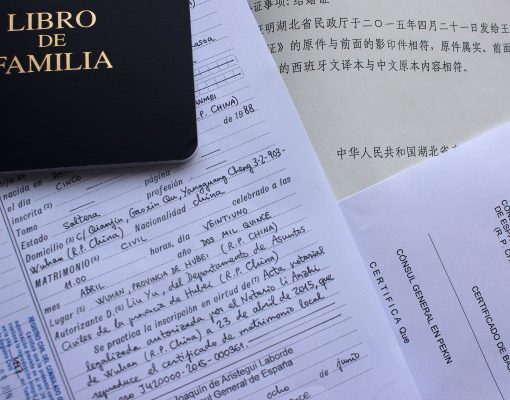 LIBRO
DE
FAMILIA
WUHAN, PROVINCIA DE HUBEI (R.P. CHINA)
de 1988
nacida en
el día CINCO
inscrita (2)
Tomo página
Estado Soltera profesión
Domicilio (3) C/ Qianjin, Gaoxin Qu, Yangguang Cheng 3-2-903-
Wuhan (R.P. China) Nacionalidad china
MATRIMONIO (4) CIVIL celebrado a las
11.00 horas, día VEINTIUNO
mes ABRIL año DOS MIL QUINCE
Lugar (5) WUHAN, PROVINCIA DE HUBEI (R.P. CHINA)
Autorizante D. (6) Liu Yu, del Departamento de Asuntos
Civiles de la provincia de Hubei (R.P. China)
Se practica la inscripción en virtud de (7) Acta notarial
legalizada autorizada por el Notario Li Anzhi
de Wuhan (R.P. China) a 23 de abril de 2015, que
reproduce el certificado de matrimonio local
J420000-2015-000361.
Joaquín de Arístegui Laborde
Consul General de España
ocho de junio
证事项：结婚证
证明湖北省民政厅于二〇一五年四月二十一日发给王
证》的原件与前面的影印件相符，原件属实。前面
的西班牙文译本与中文原本内容相符。
中华人民共和国湖北省
CÓNSUL GENERAL EN PEKIN
CERTIFICA Que
CERTIFICADO DE
DE ESPAÑA
(R. P.